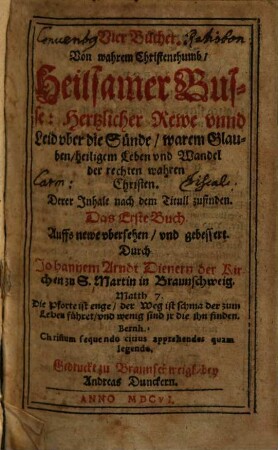 Conuentus Ratisbon
Vier Bücher.
Von wahrem Christenthumb/
Heilsamer Bus-
se: Hertzlicher Rewe vnnd
Leid vber die Sünde/ warem Glau-
ben/ heiligem Leben vnd Wandel
der rechten wahren
Carm: Christen. Discal:
Derer Inhalt nach dem Titull zufinden.
Das Erste Buch.
Auffs newe vbersehen/ vnd gebessert.
Durch
Johannem Arndt Dienern der Kir-
chen zu S. Martin in Braunschweig.
Matth 7.
Die Pforte ist enge/ der Weg ist schmal der zum
Leben führet/ vnd wenig sind jr die jhn finden.
Bernh.
Christum sequendo citius apprehendes quam
legendo.
Gedruckt zu Braunschweigk/ bey
Andreas Dunckern.
ANNO MDCVI.